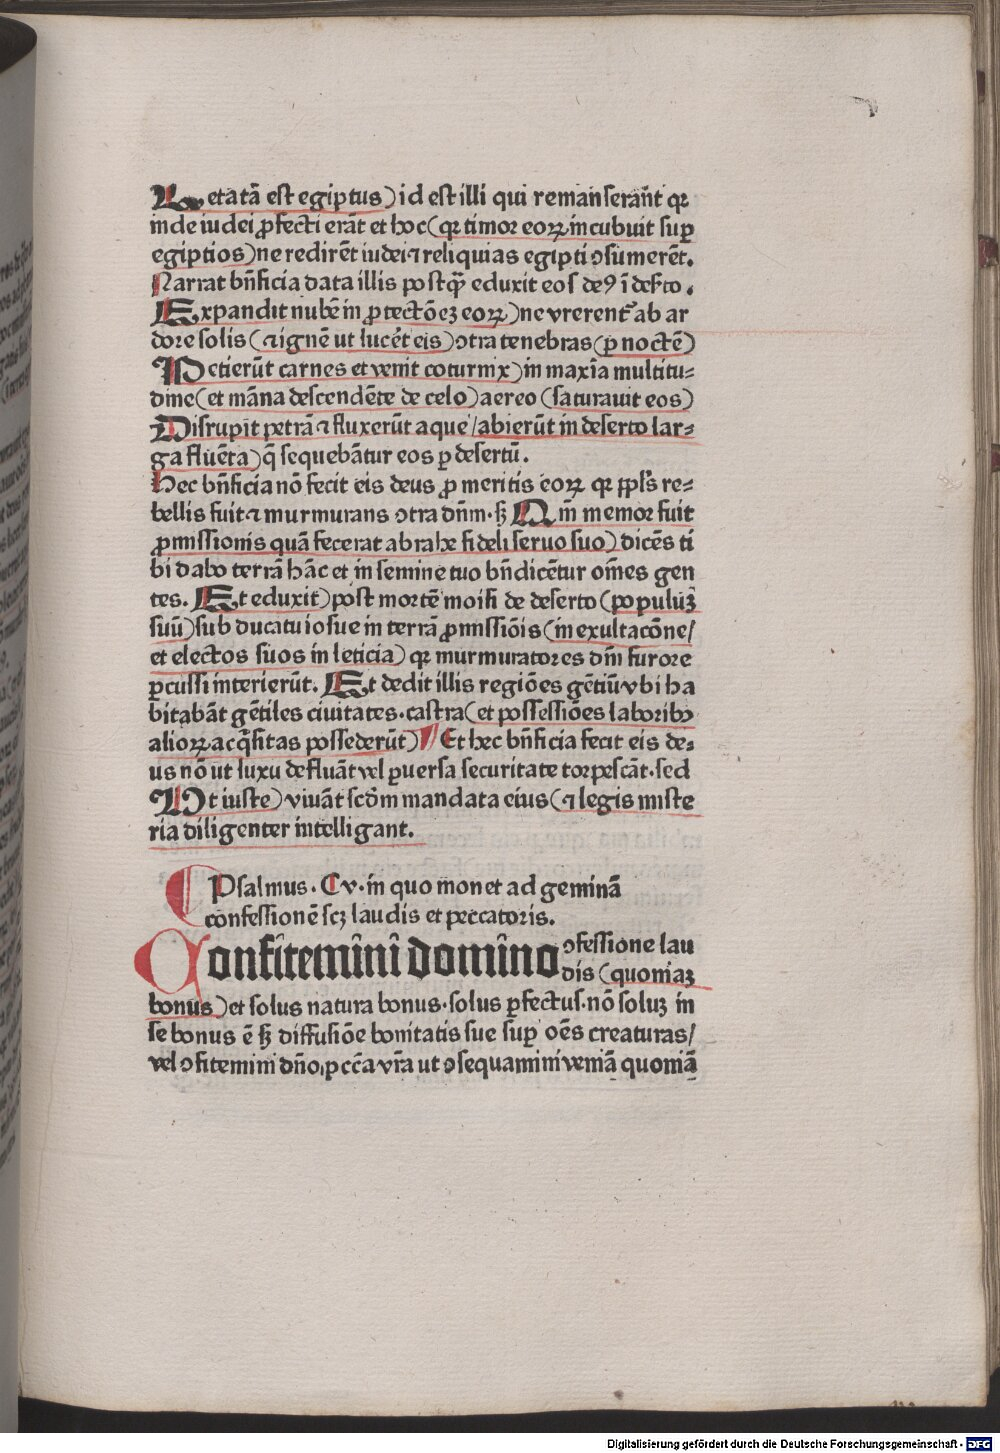 Letatā est egiptus) id est illi qui remanserāt qꝛ
inde iudei ꝓfecti erāt et hoc (qꝛ timor eoꝝ incubuit suꝑ
egiptios) ne redirēt iudei ⁊ reliquias egipti ↄsumerēt.
Narrat bn̄ficia data illis postq̄ꝫ eduxit eos deꝰ ī dеẜto.
Expandit nubē in ꝓtectōeꝫ eoꝝ) ne vrerent᷑ ab ar
dore solis (⁊ ignē ut lucēt eis) ↄtra tenebras (ꝑ noctē)
Petierūt carnes et venit coturnix) in maxīa multitu⸗
dine (et māna descendēte de celo) aereo (saturauit eos)
Disrupit petrā ⁊ fluxerūt aque / abierūt in deserto lar⸗
ga fluēta) q̄ sequebātur eos ꝑ desertū.
Hec bn̄ficia nō fecit eis deus ꝓ meritis eoꝝ qꝛ ppl̄s re⸗
bellis fuit ⁊ murmurans ↄtra dn̄m. ẜꝫ Qm̄ memor fuit
ꝓmissionis quā fecerat abrahe fideli seruo suo) dicēs ti
bi dabo terrā hāc et in semine tuo bn̄dicētur om̄es gen
tes. Et eduxit) post mortē moisi de deserto (populuꝫ
suū) sub ducatu iosue in terrā ꝓmissiōis (in exultacōne /
et electos suos in leticia) qꝛ murmuratores dn̄i furore
ꝑcussi interierūt. Et dedit illis regiōes gētiū vbi ha
bitabāt gētiles ciuitates. castra (et possessiōes laboribꝰ
alioꝝ acq̄sitas possederūt) Et hec bn̄ficia fecit eis de⸗
us nō ut luxu defluāt vel ꝑuersa securitate torpescāt. sed
Vt iuste) viuāt scd̄m mandata eius (⁊ legis miste
ria diligenter intelligant.
Psalmus. Cv. in quo monet ad geminā
confessionē scꝫ laudis et peccatoris.
Confitemini domino ↄfessione lau
dis (quoniaꝫ
bonus) et solus natura bonus. solus ꝑfectus. nō soluꝫ in
se bonus ē ẜꝫ diffusiōe bonitatis sue suꝑ oēs creaturas /
vel ↄfitemini dn̄o, pcc̄a vr̄a ut ↄsequamini veniā quoniā
Digitalisierung gefördert durch die Deutsche Forschungsgemeinschaft - DFG